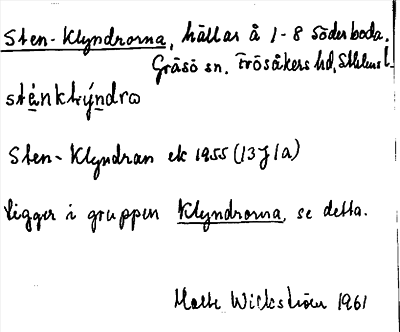 Sten-Klyndrorna, hällar å 1-8 Söderboda.
Gräsö sn. Frösåkers hd, Sthlms l.
Sten-Klyndran ek 1955 (13J1a)
ligger i gruppen Klyndrorna, se detta.
Wickström 1961